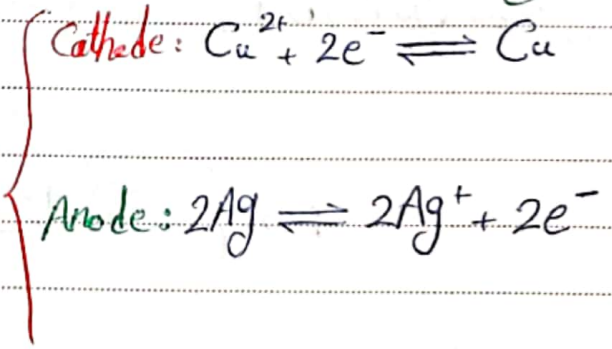 Cathode: Cu²⁺ + 2e⁻ ⇌ Cu
Anode: 2Ag ⇌ 2Ag⁺ + 2e⁻